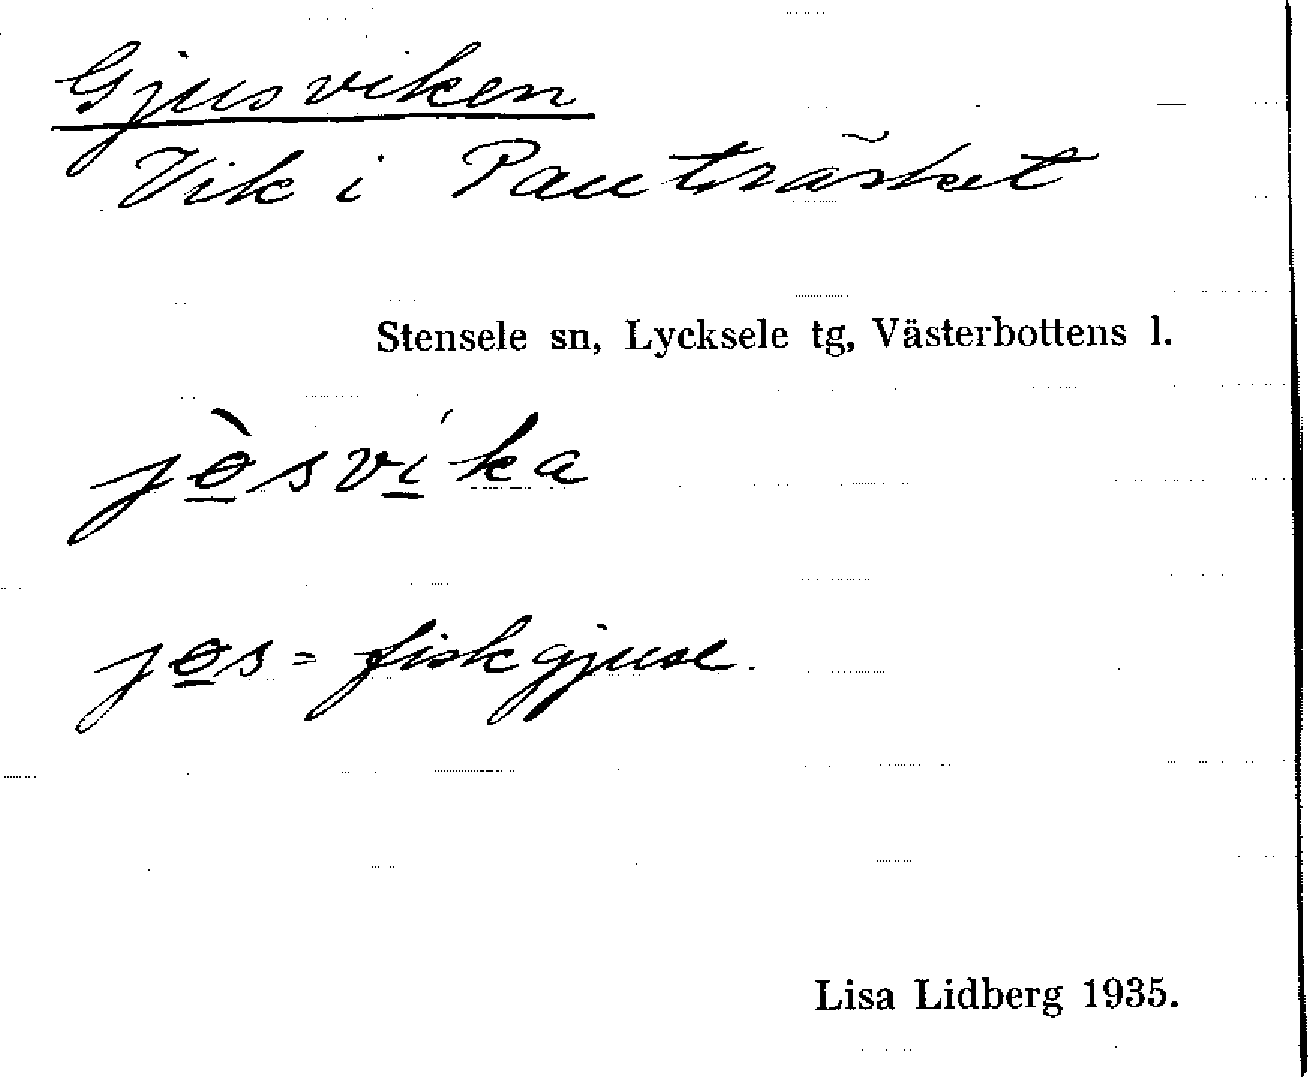 Gjusviken
Vik i Pauträsket
Stensele sn, Lycksele tg, Västerbottens l.
jɵ̠̀sví̠ka
jɵ̠s = fiskgjuse.
Lisa Lidberg 1935.